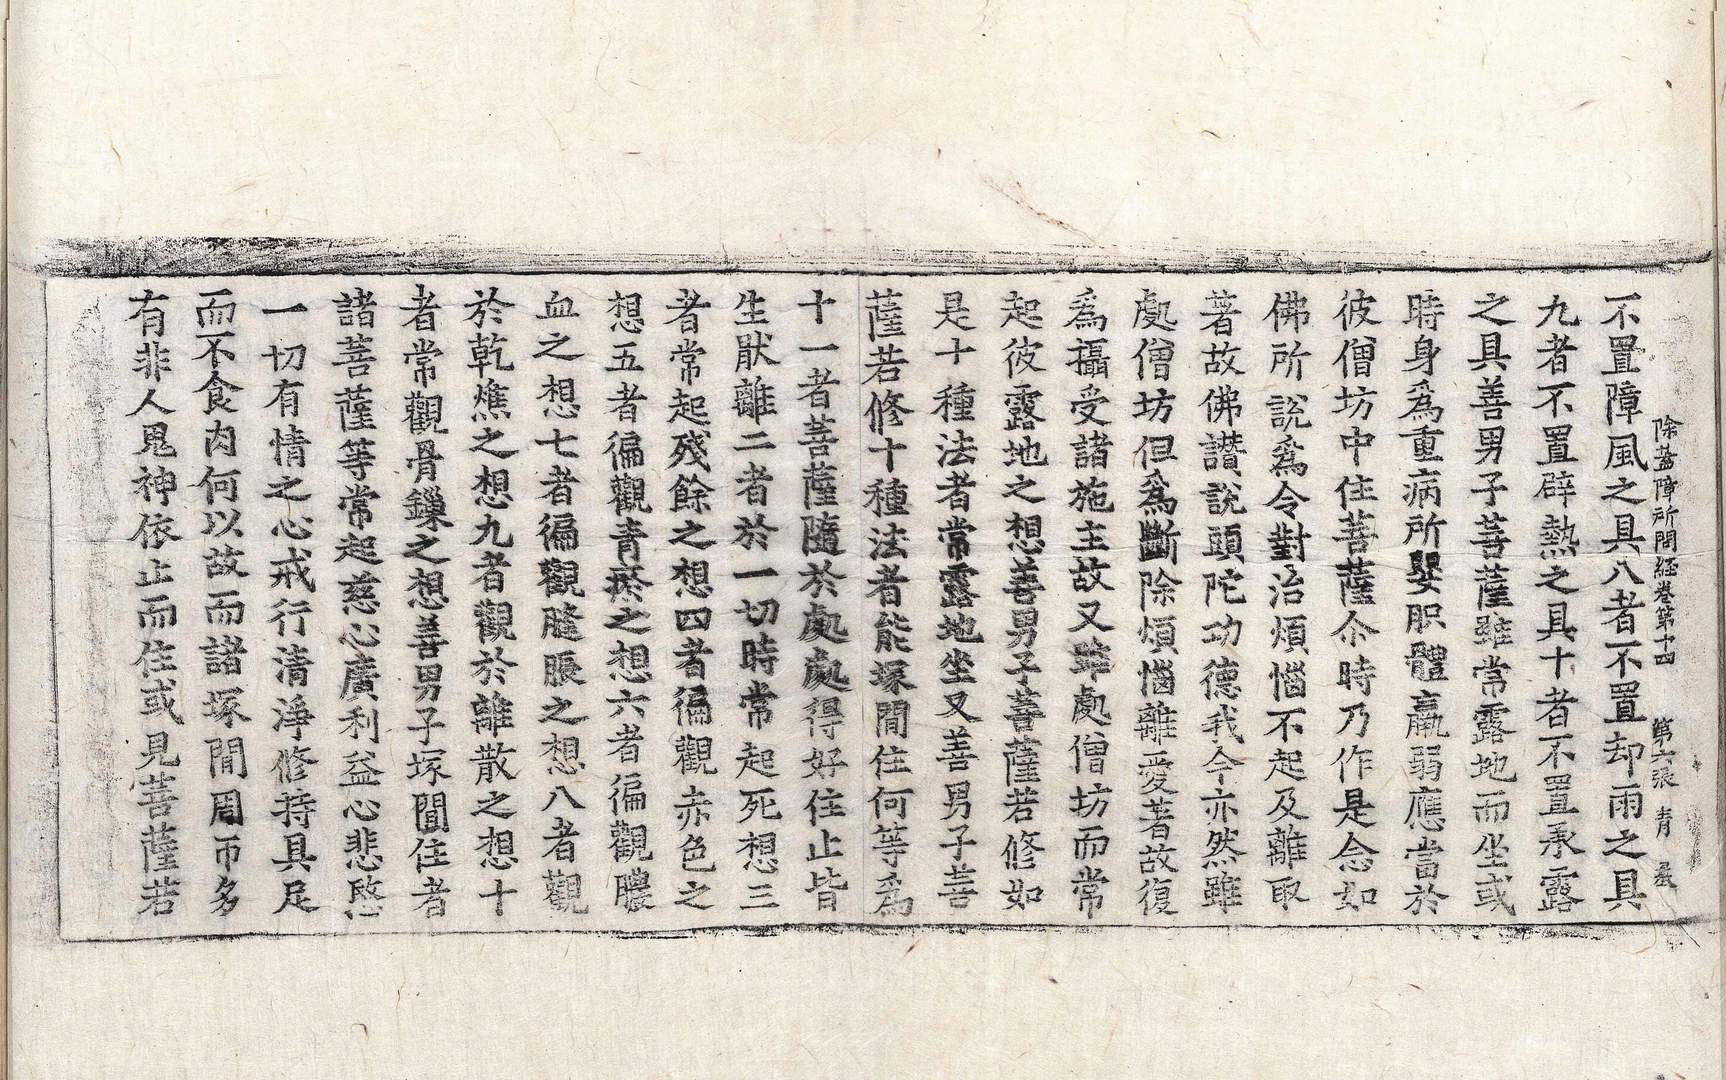 除蓋障所問経卷第十四　第六張　青
不置障風之具八者不置却雨之具
九者不置辟熱之具十者不置承露
之具善男子菩薩雖常露地而坐或
時身為重病所嬰胑體羸弱應當於
彼僧坊中住菩薩尒時乃作是念如
佛所說為令對治煩惱不起及離取
著故佛讃說頭陀功德我今亦然雖
處僧坊但為斷除煩惱離愛著故復
為攝受諸施主故又雖處僧坊而常
起彼露地之想善男子菩薩若修如
是十種法者常露地坐又善男子菩
薩若修十種法者能塚間住何等為
十一者菩薩隨於處處得好住止皆
生猒離二者於一切時常起死想三
者常起殘餘之想四者徧觀赤色之
想五者徧觀青瘀之想六者徧觀膿
血之想七者徧觀膖脹之想八者觀
於乾燋之想九者觀於離散之想十
者常觀骨鏁之想善男子塚間住者
諸菩薩等常起慈心廣利益心悲愍
一切有情之心戒行清淨修持具足
而不食肉何以故而諸塚間周帀多
有非人鬼神依止而住或見菩薩若